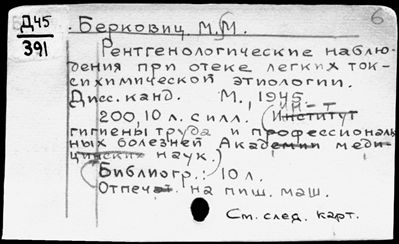 Д45
391
Беркович, М.М. 6
Рентгенологические наблю-
дения при отеке легких ток-
сихимической этиологии.
Дисс. канд. М., 1945
200, 10 л. с илл. (Институт ин-т
гигиены труда и профессиональ-
ных болезней Академии меди-
цинских наук.)
Библиогр.: 10 л.
Отпечат. на пиш. маш.
См. след. карт.